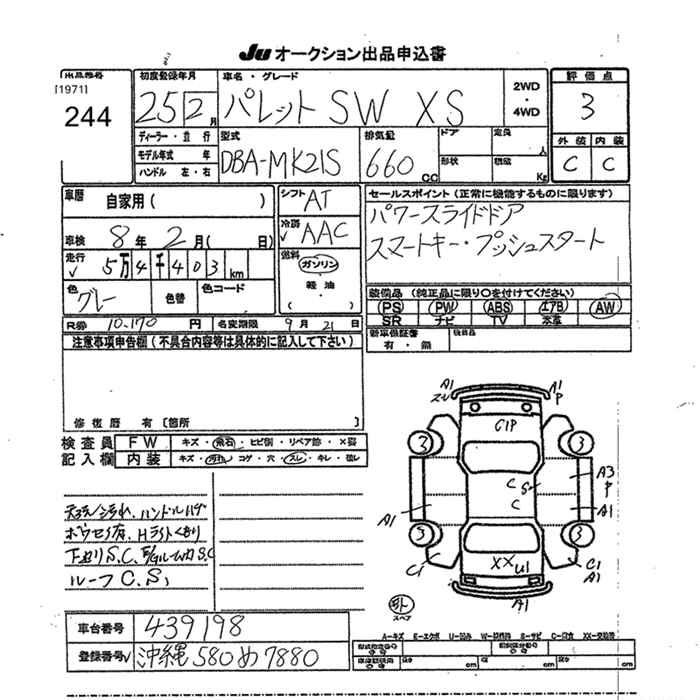 JU オークション出品申込書
出品番号
[1971]
244
初度登録年月
25 12 月
車名・グレード
パレット SW XS
2WD
・
4WD
評価点
3
外装 内装
C C
ディーラー・並行
モデル年式 年
ハンドル 左・右
型式
DBA-MK21S
排気量
660 CC
ドア
形状
定員 人
積載 Kg
車歴 自家用 ( )
車検 8 年 2 月 ( 日)
走行 5万 4千 403 km
色 グレー
色替
色コード
シフト AT
冷房 AAC
燃料 ガソリン
軽油
( )
セールスポイント (正常に機能するものに限ります)
パワースライドドア
スマートキー・プッシュスタート
装備品 (純正品に限り○を付けてください)
PS PW ABS エアB AW
SR ナビ TV 本革
新車保証書
有・無
後日品
R券 10,170 円 名変期限 9月 21日
注意事項申告欄 (不具合内容等は具体的に記入して下さい)
修復歴 有 〔箇所 〕
検査員 FW キズ・飛石・ヒビ割・リペア跡・X要
記入欄 内装 キズ・汚れ・コゲ・穴・スレ・キレ・
汚れ、ハンドルハゲ
Hライトくもり
下廻りS.C、 S.C
ルーフC.S
A1
A1
P
G1P
2
3
C
S
C
A3
P
A1
A1
3
3
C1
XX
U1
C1
A1
A1
スペア
A-キズ E-エクボ U-凹み W-補修跡 S-サビ C-腐食 XX-交換済
車台番号 439198
登録番号 沖縄 580 め 7880
cm cm cm